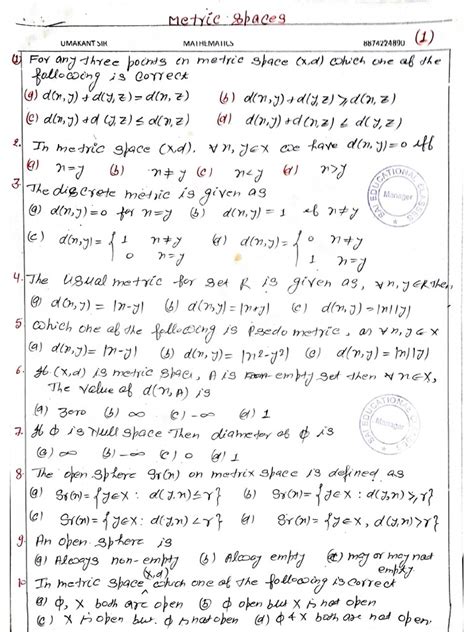 Metric Spaces
UMAKANT SIR MATHEMATICS 8874224890 (1)
(1) For any three points in metric space (x,d) which one of the
following is correct
(a) d(x,y)+d(y,z)=d(x,z) (b) d(x,y)+d(y,z)≥d(x,z)
(c) d(x,y)+d(y,z)≤d(x,z) (d) d(x,y)+d(x,z)≤d(y,z)
2. In metric space (x,d). ∀ x,y∈X we have d(x,y)=0 iff
(a) x=y (b) x≠y (c) x<y (d) x>y
3. The discrete metric is given as
(a) d(x,y)=0 for x=y (b) d(x,y)=1 if x≠y
(c) d(x,y)={ 1 x≠y (d) d(x,y)={ 0 x≠y
0 x=y 1 x=y
SAI EDUCATIONAL
Manager
4. The usual metric for set R is given as, ∀ x,y∈R then,
(a) d(x,y)=|x-y| (b) d(x,y)=|x+y| (c) d(x,y)=|x||y|
5. Which one of the following is Psedo metric, on ∀ x,y∈X
(a) d(x,y)=|x-y| (b) d(x,y)=|x²-y²| (c) d(x,y)=|x||y|
6. If (x,d) is metric space, A is empty set then ∀ x∈X,
The value of d(x,A) is
(a) Zero (b) ∞ (c) -∞ (d) 1
SAI EDUCATIONAL
Manager
7. If ϕ is Null space Then diameter of ϕ is
(a) ∞ (b) -∞ (c) 0 (d) 1
8. The open sphere Sr(x) on metrix space is defined as
(a) Sr(x)={y∈X : d(y,x)≤r} (b) Sr(x)={y∈X : d(y,x)≥r}
(c) Sr(x)={y∈X: d(y,x)<r} (d) Sr(x)={y∈X, d(y,x)>r}
9. An open sphere is
(a) Always non-empty (b) Alway empty (c) may or may not
empty
10. In metric space (x,d) which one of the following is correct
(a) ϕ, X both are open (b) ϕ open but X is not open
(c) X is open but ϕ is not open (d) ϕ & X both are not open.